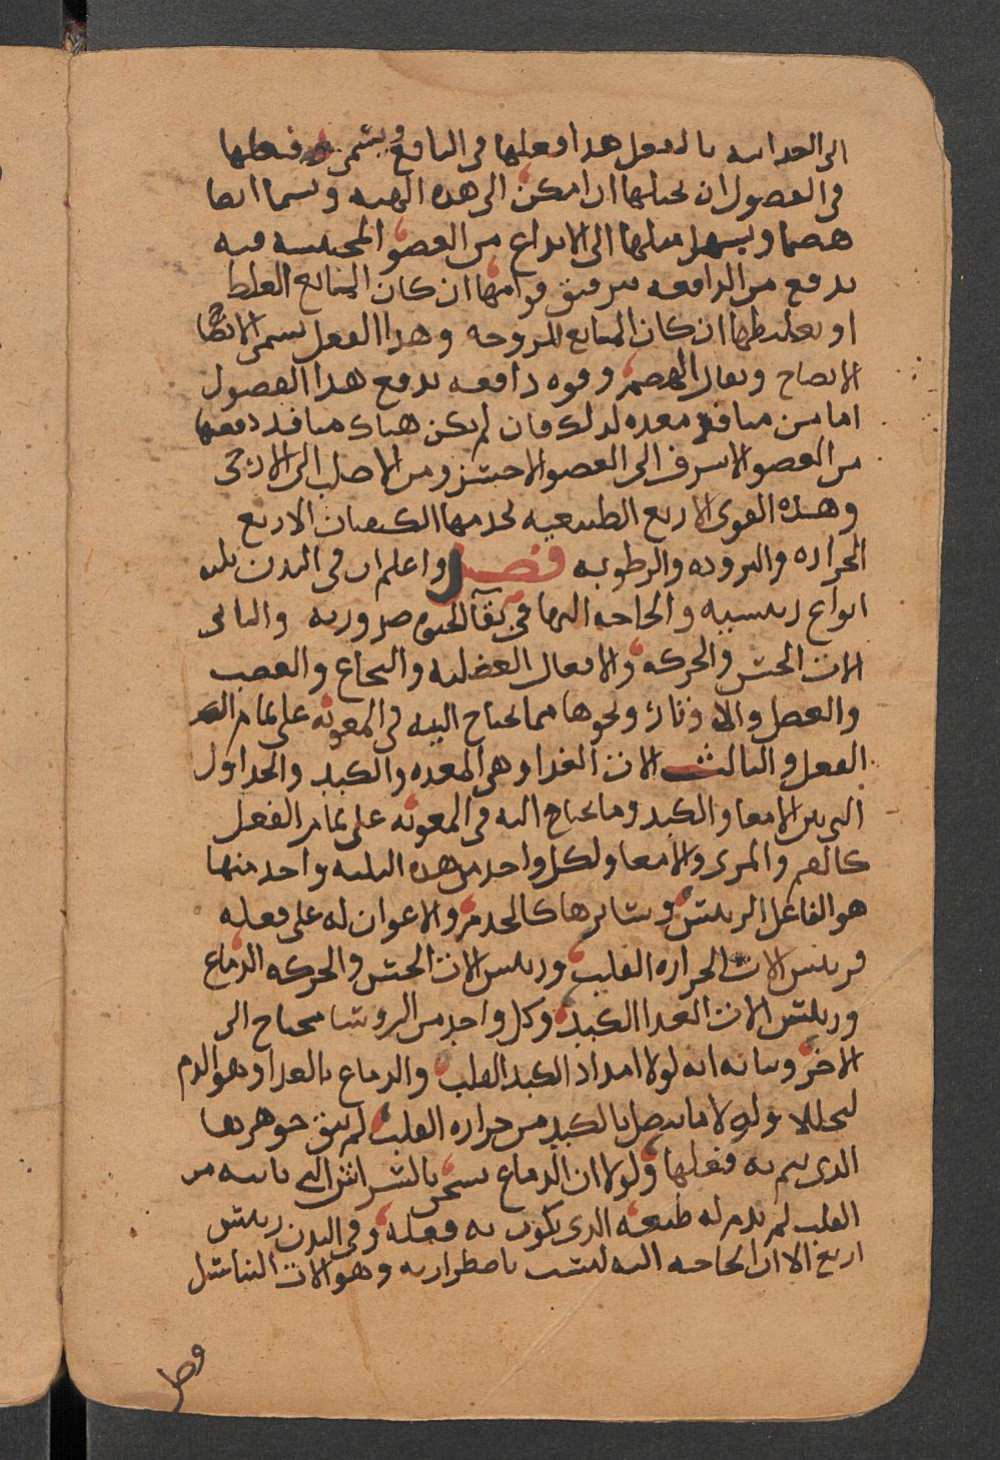 الى الغدائيه بالفعل هدا فعلها فى النافع ويسمى هضم فعلها
فى الفصول ان تحيلها ان امكن الى هده الهيه ويسما ايضا
هضما ويسهل سيلها الى الاندفاع من العضو المحتبسه فيه
بدفع من الدافعه بترقيق قوامها ان كان المانع الغلظ
او تغليظها ان كان المانع اللزوجه وهدا الفعل يسمى الانضاج
الانضاج ويقال الهضم وقوه دافعه تدفع هدا الفصول
اما من منافد معده لدلك فان لم يكن هناك منافد دفعها
من العضو الاشرف الى العضو الاخس ومن الاصلب الى الارخى
وهده القوى الاربع الطبيعيه تخدمها الكيفيات الاربع
الحراره والبروده والرطوبه فصل واعلم ان فى البدن ثلثه
انواع رئيسيه والحاجه اليها فى بقآ الحيوه ضروريه والثانى
الات الحس والحركه والافعال العضليه والنخاع والعصب
والعضل والاوتار ونحوها مما يحتاج اليه فى المعونه على تمام
الفعل والثالث الات الغدا وهى المعده والكبد والجداول
التى بين الامعا والكبد وما يحتاج اليه فى المعونه على تمام الفعل
كالفم والمرى والامعا ولكل واحد من هده الثلثه واحد منها
هو الفاعل الرئيس وسائرها كالخدم والاعوان له على فعله
فرئيس الات الحراره القلب ورئيس الات الحس والحركه الدماغ
ورئيس الات الغدا الكبد وكل واحد من الروسا محتاج الى
الاخر وبيانه انه لولا امداد الكبد القلب والدماغ بالغدا وهو الدم
لتحللا ولولا ما يتصل بالكبد من حراره القلب لم يبق جوهرها
الدى يتم به فعلها ولولا ان الدماغ يسخن بالشرائين التى تاتيه من
القلب لم يدم له طبعه الدى يكون به فعله وفى البدن رئيس
اربع الا ان الحاجه اليه ليست باضطراريه وهو الات التناسل